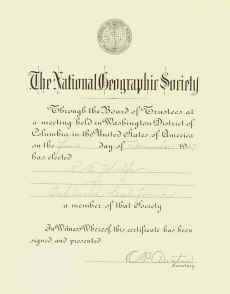 The National Geographic Society
Through the Board of Trustees at
a meeting held in Washington District of
Columbia in the United States of America
on the day of 19
has elected
a member of that Society
In Witness Whereof this certificate has been
signed and presented
Secretary